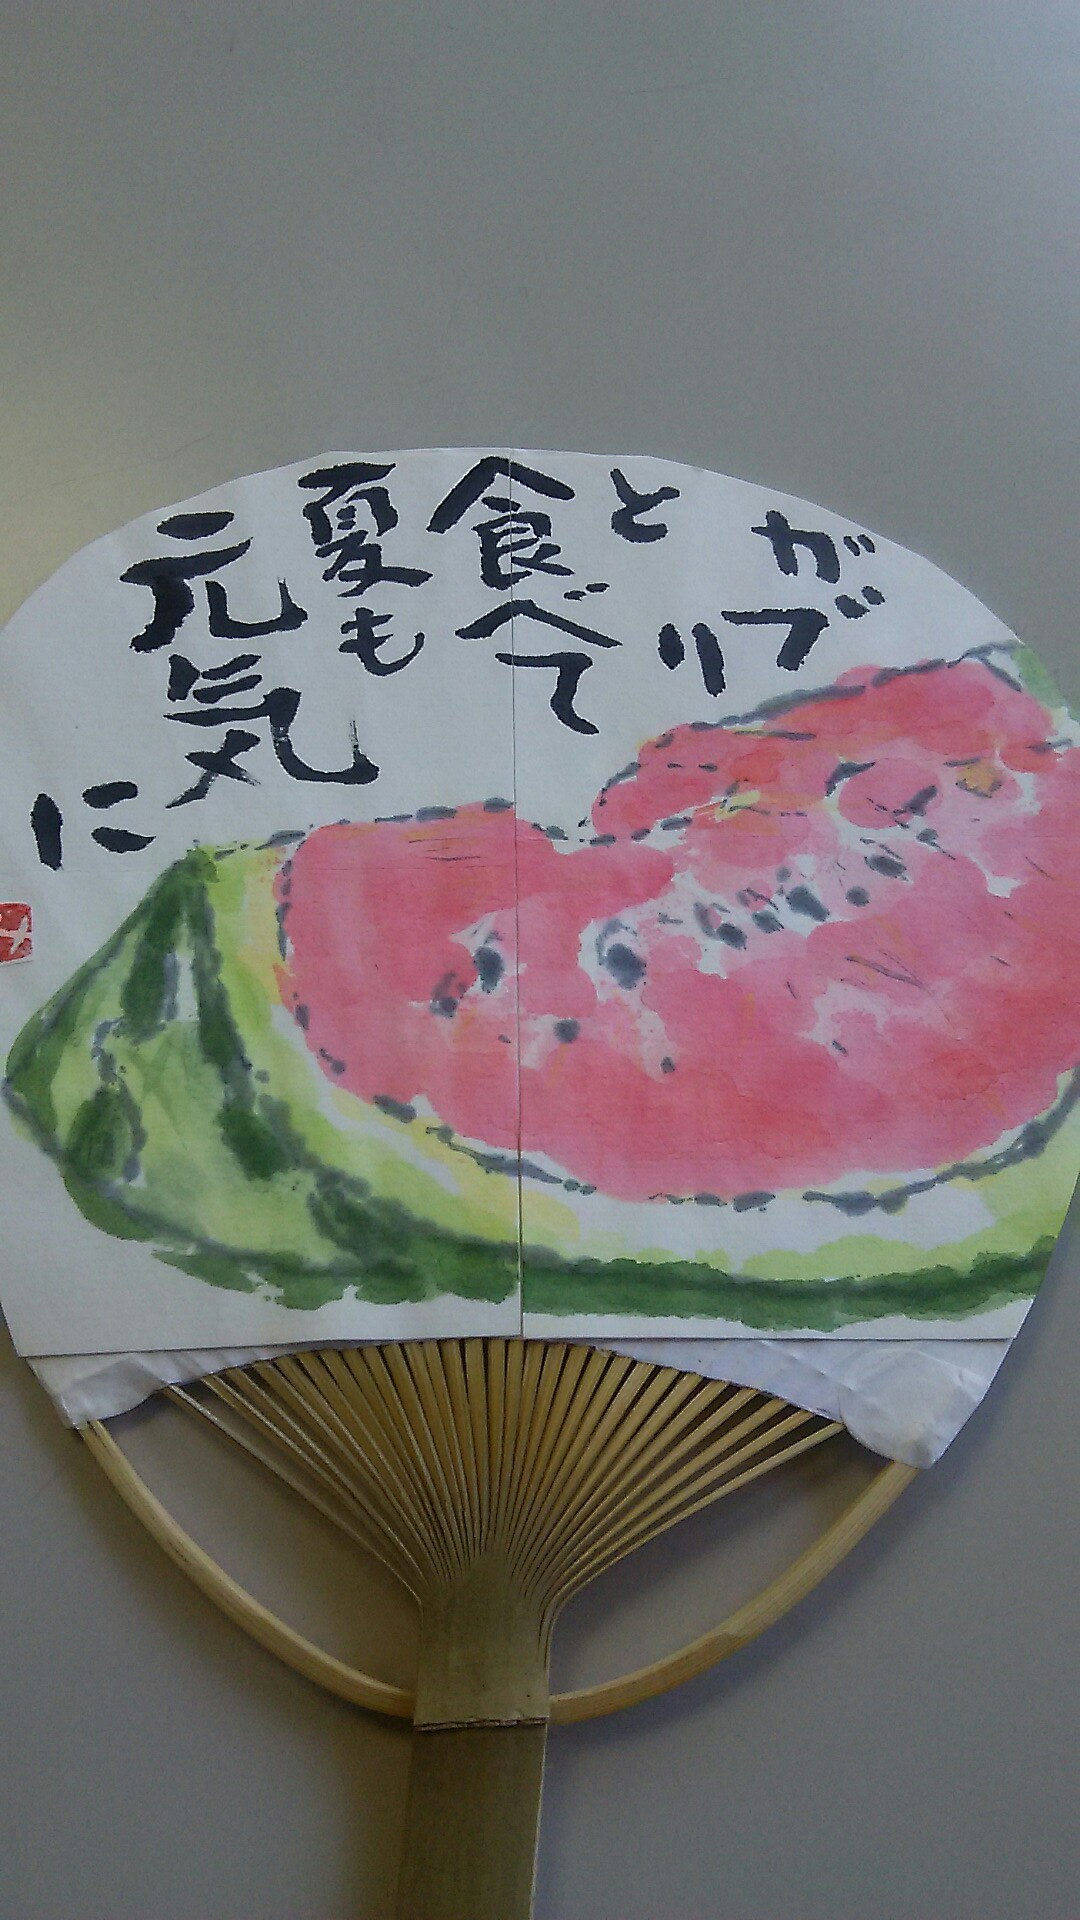 がブリ
と
食べて
夏も
元気
に